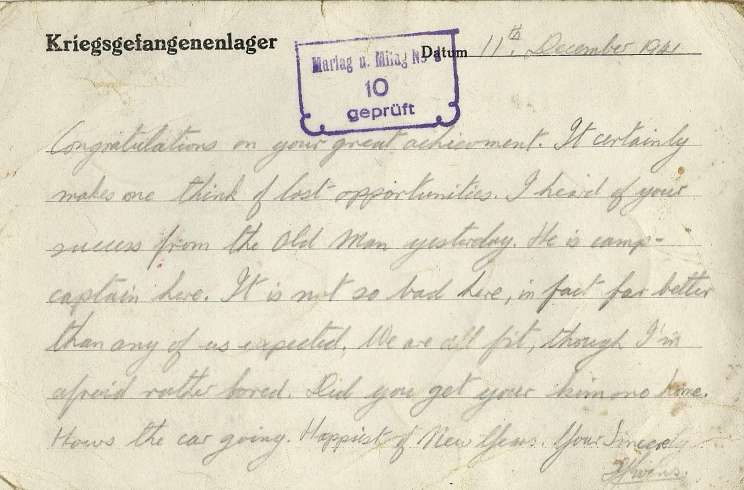 Kriegsgefangenenlager
Marlag u. Milag No
10
geprüft
Datum 11th December 1941
Congratulations on your great achievment. It certainly
makes one think of lost opportunities. I heard of your
success from the Old Man yesterday. He is camp-
captain here. It is not so bad here, in fact far better
than any of us expected. We are all fit, though I'm
afraid rather bored. Did you get your kimono home.
Hows the car going. Happiest of New Years. Your Sincerely